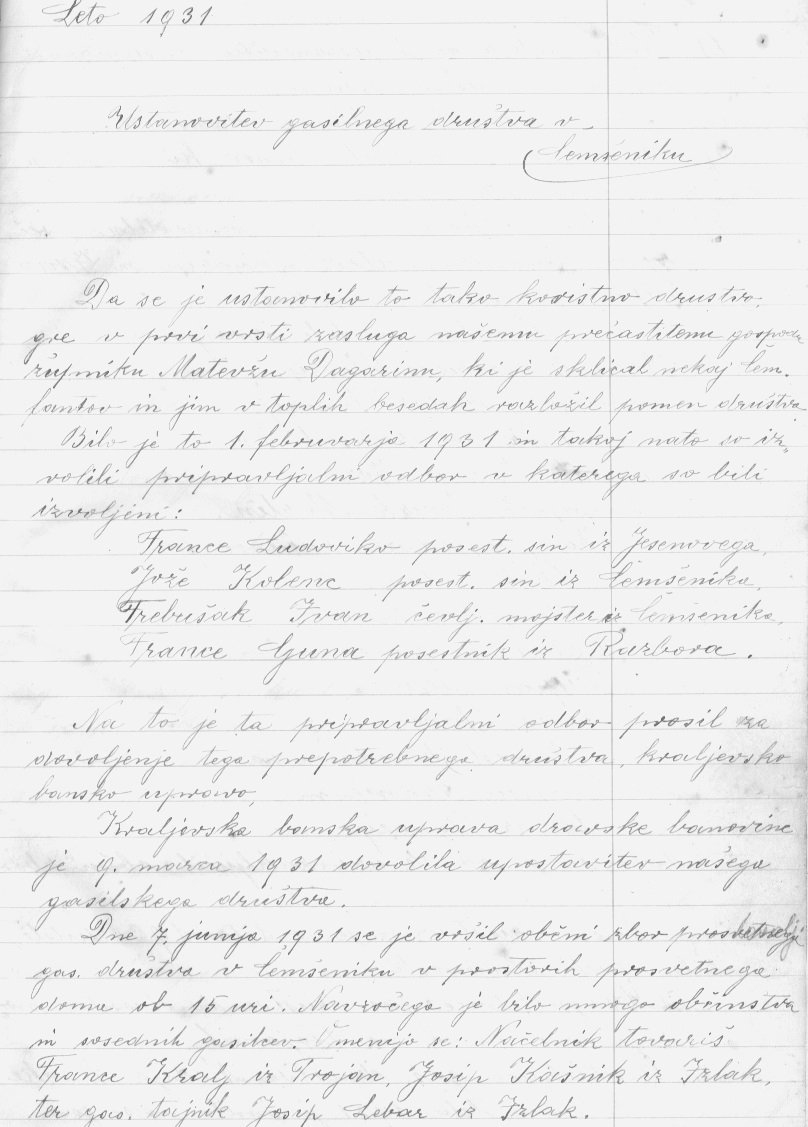 Leto 1931
Ustanovitev gasilnega društva v
Čemšeniku
Da se je ustanovilo to tako koristno društvo,
gre v prvi vrsti zasluga našemu prečastitemu gospodu
župniku Matevžu Dagarinu, ki je sklical nekaj čem.
fantov in jim v toplih besedah razložil pomen društva.
Bilo je to 1. februvarja 1931 in takoj nato so iz-
volili pripravljalni odbor v katerega so bili
izvoljeni:
France Ludoviko posest. sin iz Jesenovega,
Jože Kolenc posest. sin iz Čemšenika,
Trebušak Ivan čevlj. mojster iz Čemšenika,
France Guna posestnik iz Razbora.
Na to je ta pripravljalni odbor prosil za
dovoljenje tega prepotrebnega društva, kraljevsko
bansko upravo,
Kraljevska banska uprava dravske banovine
je 9. marca 1931 dovolila upostavitev našega
gasilskega društva.
Dne 7. junija 1931 se je vršil občni zbor
gas. društva v Čemšeniku v prostorih prosvetnega
doma ob 15 uri. Navzočega je bilo mnogo občinstva
in sosednih gasilcev. Omenijo se: Načelnik tovariš
France Kralj iz Trojan, Josip Kašnik iz Izlak,
ter gas. tajnik Josip Lebar iz Izlak.